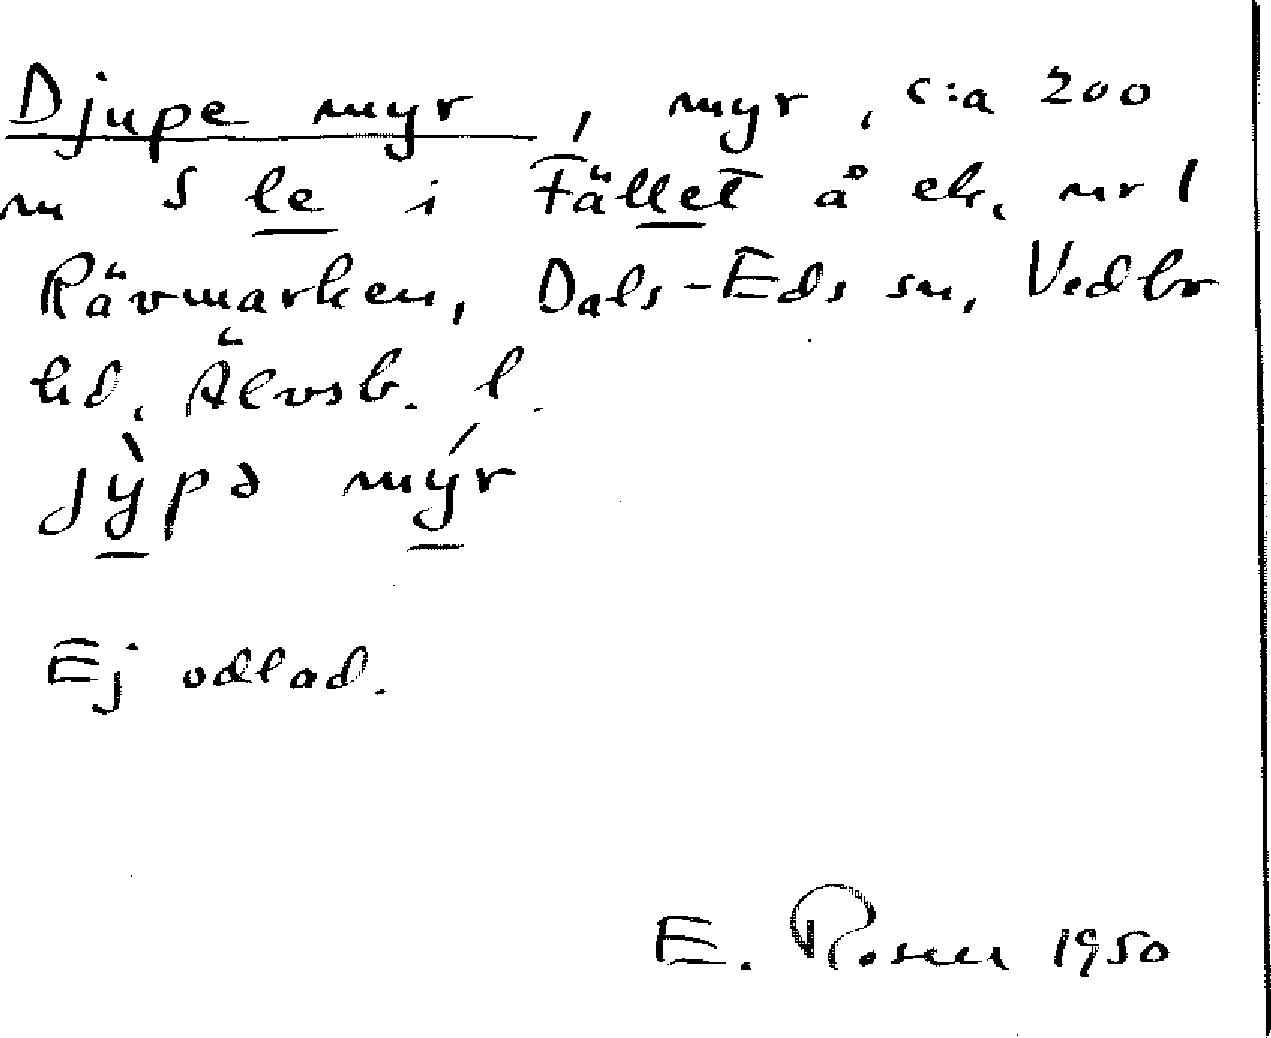 Djupe myr, myr, c:a 200
m S le i Fället å ek. nr 1
Rävmarken, Dals-Eds sn, Vedbo
hd, Älvsb. l.
jỳpə mýr
Ej odlad.
E. Rosen 1950